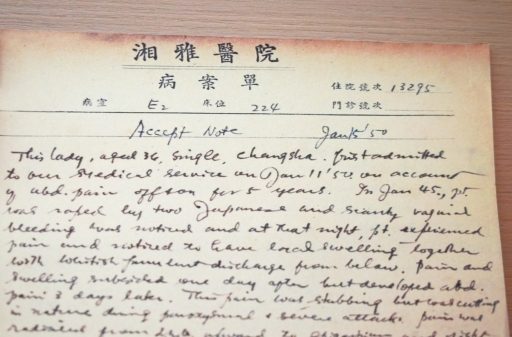 湘雅醫院
病案單
住院號次 13295
病室 E2 床位 224 門診號次
Accept Note Jan 15'50
This lady, aged 36, single, Changsha. first admitted
to our medical service on Jan 11'50 on account
of abd. pain off & on for 5 years. In Jan 45, pt.
was raped by two Japanese and scanty vaginal
bleeding was noticed and at that night, pt. experienced
pain and noticed to have local swelling together
with whitish purulent discharge from below. Pain and
swelling subsided one day after but developed abd.
pain 3 days later. This pain was stabbing but was cutting
in nature during paroxysmal & severe attacks. Pain was